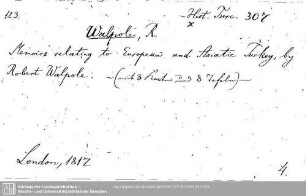 123.
Hist. Turc. 307
x
Walpole, R.
Memoirs relating to European and Asiatic Turkey, by
Robert Walpole. —(mit 3 Karten und 3 Tafeln)—
London, 1817
4.
Sächsische Landesbibliothek -
Staats- und Universitätsbibliothek Dresden